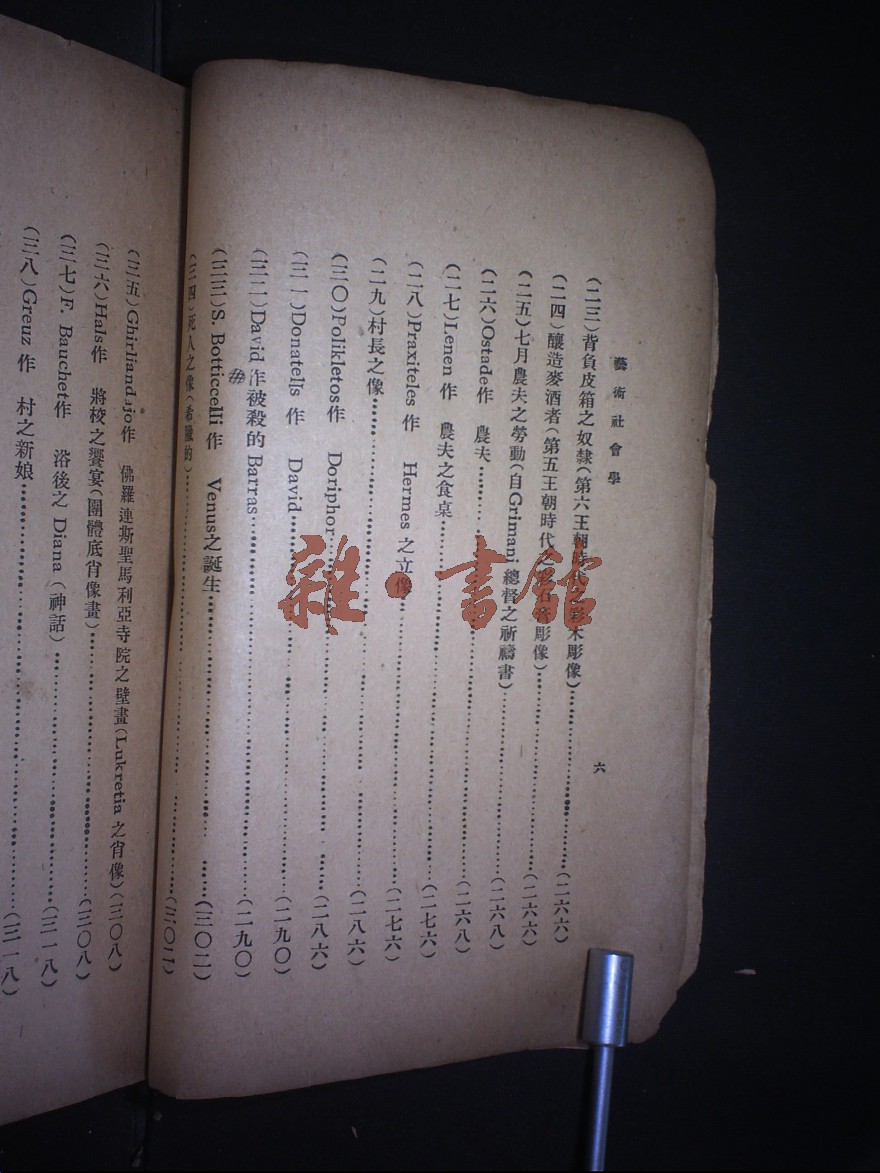 藝術社會學
六
(二三)背負皮箱之奴隸(第六王朝時代之彩木彫像)……(二六六)
(二四)釀造麥酒者(第五王朝時代之彩石膏彫像)……(二六六)
(二五)七月農夫之勞動(自Grimani總督之祈禱書)……(二六八)
(二六)Ostade作 農夫……(二六八)
(二七)Lenen作 農夫之食桌……(二七六)
(二八)Praxiteles作 Hermes之立像……(二七六)
(二九)村長之像……(二八六)
(三〇)Polikletos作 Doriphor……(二八六)
(三一)Donatells作 David……(二九〇)
(三二)David作被殺的Barras……(二九〇)
(三三)S. Botticcelli作 Venus之誕生……(三〇二)
(三四)死人之像(希臘的)……(三〇二)
(三五)Ghirliandajo作 佛羅連斯聖馬利亞寺院之壁畫(Lukretia之肖像)(三〇八)
(三六)Hals作 將校之饗宴(團體底肖像畫)……(三〇八)
(三七)F. Bauchet作 浴後之Diana(神話)……(三一八)
(三八)Greuz作 村之新娘……(三一八)
雜·書館